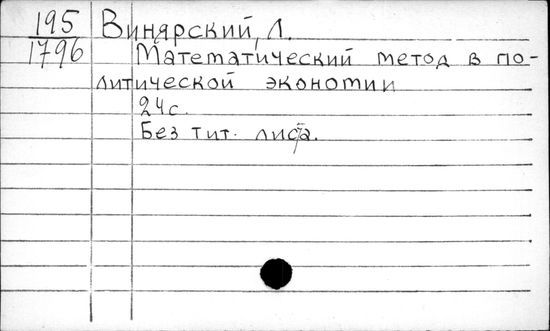 195 Винярский, Л.
1796 Математический метод в по-
литической экономии
24 с.
Без тит. листа.